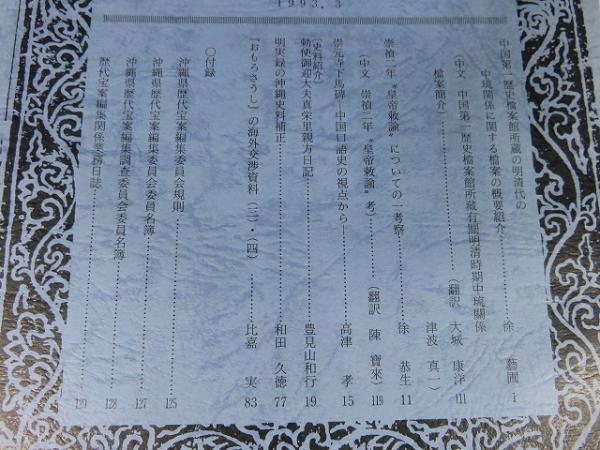 1993.3
中国第一歴史檔案館所蔵の明清代の
中琉関係に関する檔案の概要紹介……徐 藝圃 1
(中文 中国第一歴史檔案館所蔵有關明清時期中琉關係
檔案簡介)……(翻訳 大城 康洋 111
津波 真一)
崇禎二年“皇帝敕諭”についての一考察……徐 恭生 11
(中文 崇禎二年“皇帝敕諭”考)……(翻訳 陳 寶來) 119
崇元寺下馬碑―中国口語史の視点から―……高津 孝 15
(史料紹介)
勅使御迎大夫真栄里親方日記……豊見山和行 19
明実録の沖縄史料補正……和田 久徳 77
『おもろさうし』の海外交渉資料(三)・(四)……比嘉 実 83
○付録
沖縄県歴代宝案編集委員会規則……125
沖縄県歴代宝案編集委員会委員名簿……127
沖縄県歴代宝案編集調査委員会委員名簿……128
歴代宝案編集関係業務日誌……129